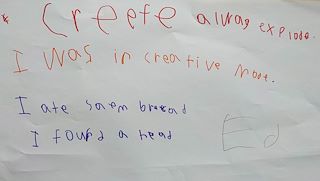 * Creefe alwas explode.
I was in creative mode.
I ate som bread
I found a head
Ed